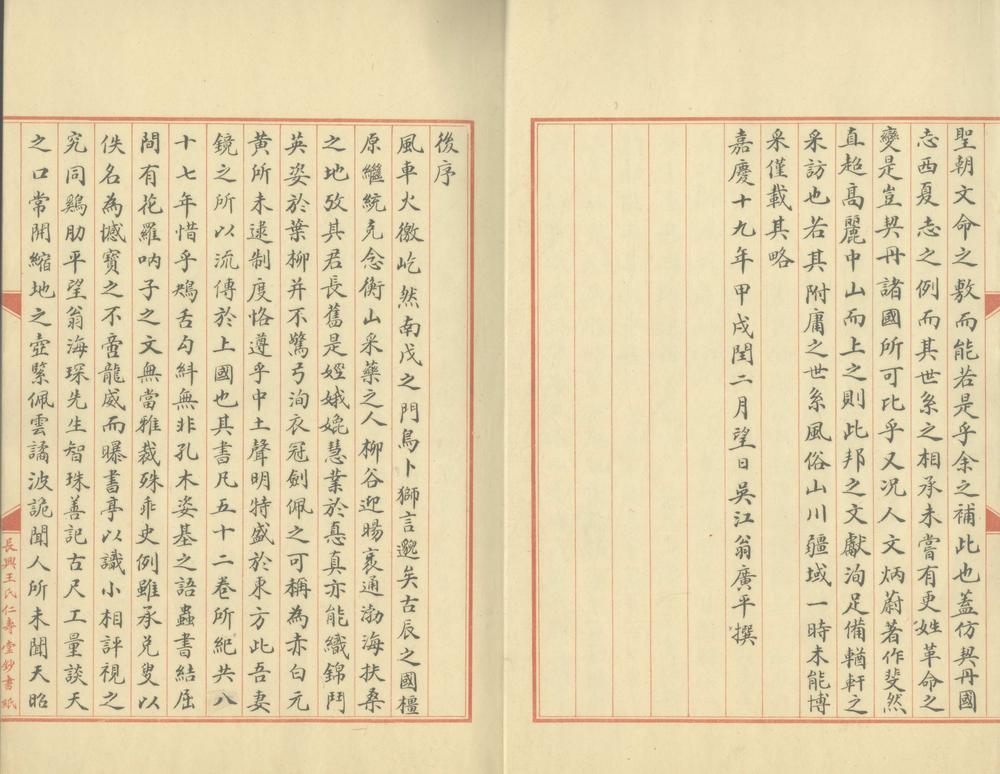 聖朝文命之敷而能若是乎余之補此也蓋仿契丹國
志西夏志之例而其世系之相承未嘗有更姓革命之
變是豈契丹諸國所可比乎又況人文炳蔚著作斐然
直超高麗中山而上之則此邦之文獻洵足備輶軒之
采訪也若其附庸之世系風俗山川疆域一時未能博
采僅載其略
嘉慶十九年甲戌閏二月望日吳江翁廣平撰
後序
風車火徼屹然南戊之門鳥卜獅言邈矣古辰之國橿
原繼統克念衡山采藥之人柳谷迎暘裒通渤海扶桑
之地攷其君長舊是娙娥媲慧業於惪真亦能織錦鬥
英姿於葉柳并不驚弓洵衣冠劍佩之可稱為赤白元
黃所未逮制度恪遵乎中土聲明特盛於東方此吾妻
鏡之所以流傳於上國也其書凡五十二卷所紀共八
十七年惜乎鴂舌勾斜無非孔木姿基之語蟲書結屈
間有花羅吶子之文無當雅裁殊乖史例雖承兌叟以
佚名為憾寶之不啻龍威而曝書亭以識小相評視之
究同鷄肋平望翁海琛先生智珠善記古尺工量談天
之口常開縮地之壺緊佩雲譎波詭聞人所未聞天昭
長興王氏仁壽堂鈔書紙